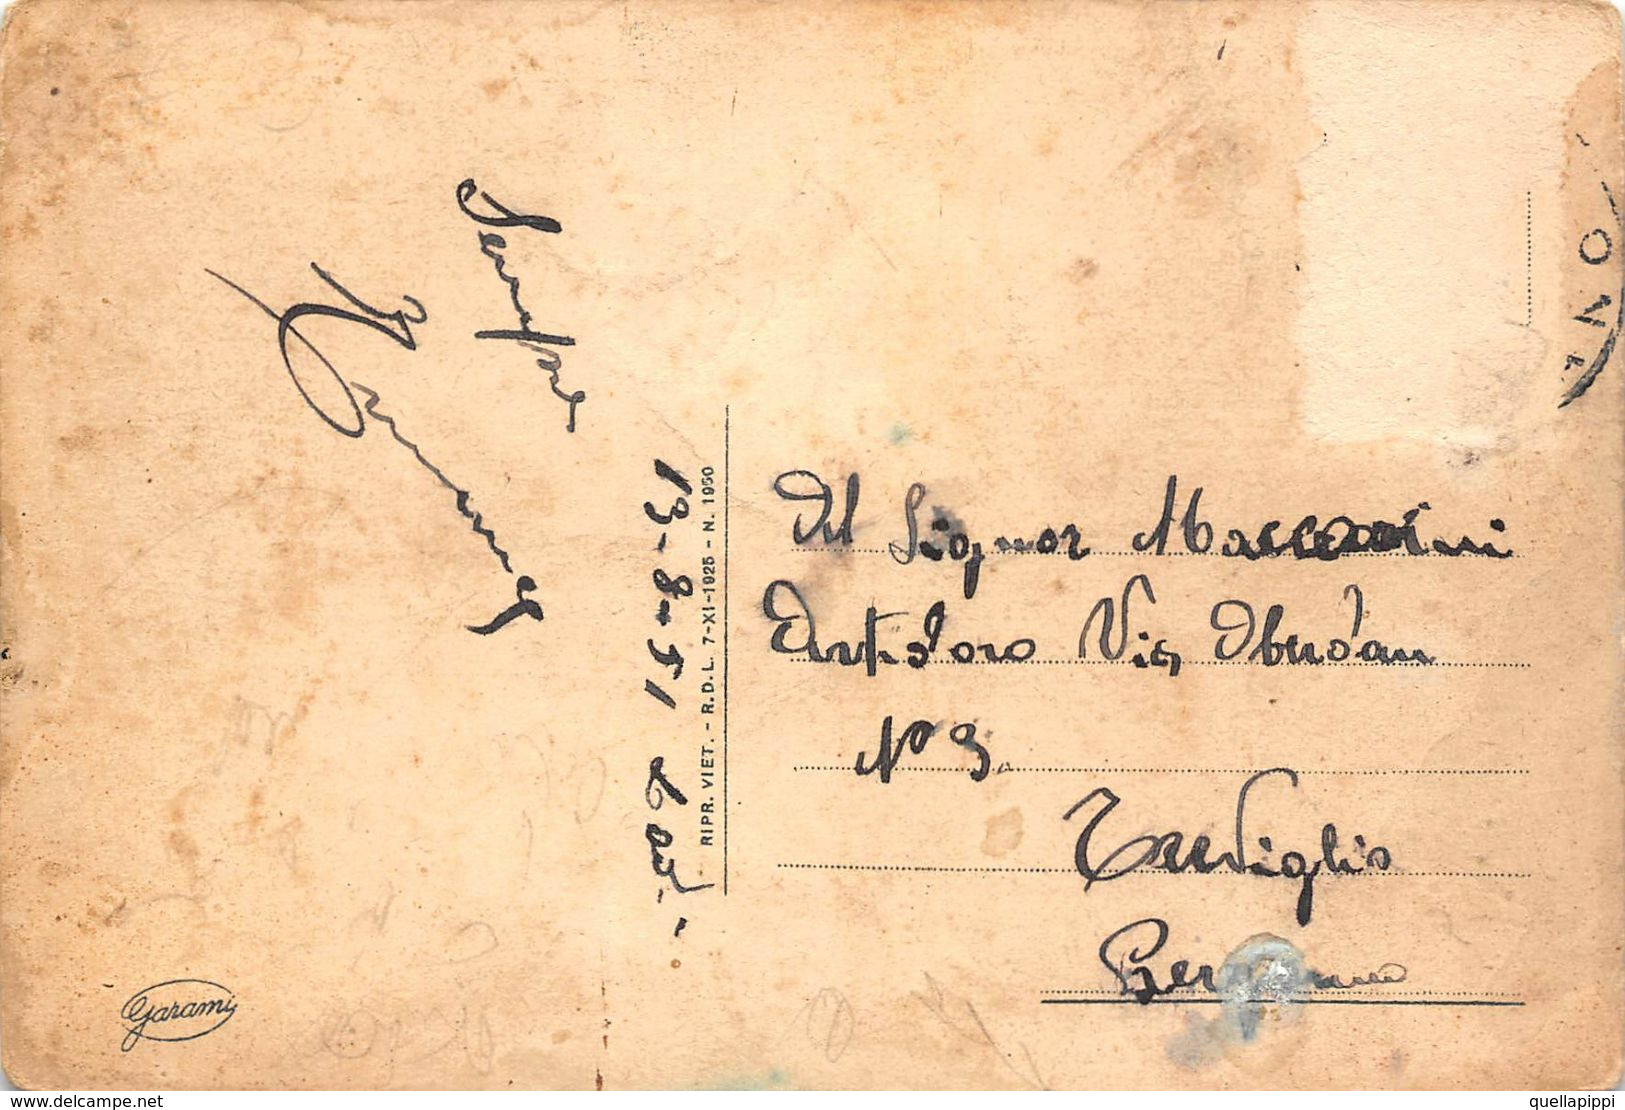 Sempre
13-8-51
RIPR. VIET. - R.D.L. 7-XI-1925 - N. 1950
Al Signor
Via Oberdan
N° 3
Treviglio
Bergamo
Garami
ONT
www.delcampe.net
quellapippi